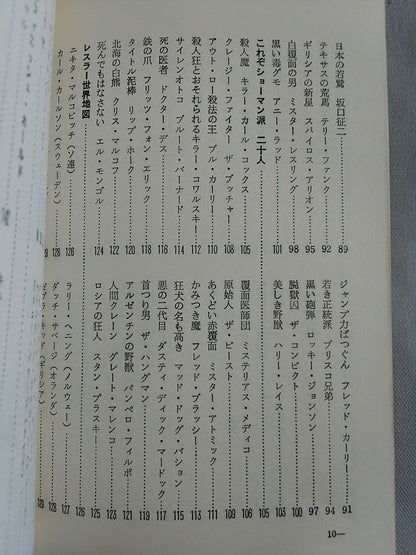 日本の若鷲 坂口征二……89
ジャンプ力ばつぐん フレッド・カーリー……91
テキサスの荒馬 テリー・ファンク……92
若き正統派 ブリスコ兄弟……94
ギリシアの新星 スパイロス・アリオン……95
黒い砲弾 ロッキー・ジョンソン……97
白覆面の男 ミスター・レスリング……98
脱獄囚 ザ・コンビクト……100
黒い毒グモ アニー・ラッド……101
美しき野獣 ハリー・レイス……103
これぞショーマン派 二十人……105
殺人魔 キラー・カール・コックス……105
覆面医師団 ミステリアス・メディコ……106
クレージー・ファイター ザ・ブッチャー……108
原始人 ザ・ビースト……109
アウト・ロー殺法の王 ブル・カーリー……110
あくどい赤覆面 ミスター・アトミック……111
殺人狂とおそれられるキラー・コワルスキー……112
かみつき魔 フレッド・ブラッシー……113
サイレンオトコ ブルート・バーナード……114
狂犬の名も高き マッド・ドッグ・バション……115
死の医者 ドクター・デス……116
悪の二代目 ダスティ・ディック・マードック……117
鉄の爪 フリッツ・フォン・エリック……118
首つり男 ザ・ハングマン……119
タイトル泥棒 リップ・ホーク……120
アルゼンチンの野獣 パンペロ・フィルポ……121
北海の白熊 クリス・マルコフ……122
人間クレーン グレート・マレンコ……123
死んでもはなさない エル・モンゴル……124
ロシアの狂人 スタン・プラスキー……125
レスラー世界地図……126
ニキタ・マルコビッチ（ソ連）……126
ラリー・ヘニング（ノルウェー）……127
カール・カールソン（スウェーデン）……128
ダッチ・サベージ（オランダ）……128
ゼブラ・キッド（ギリシア）……129
10—